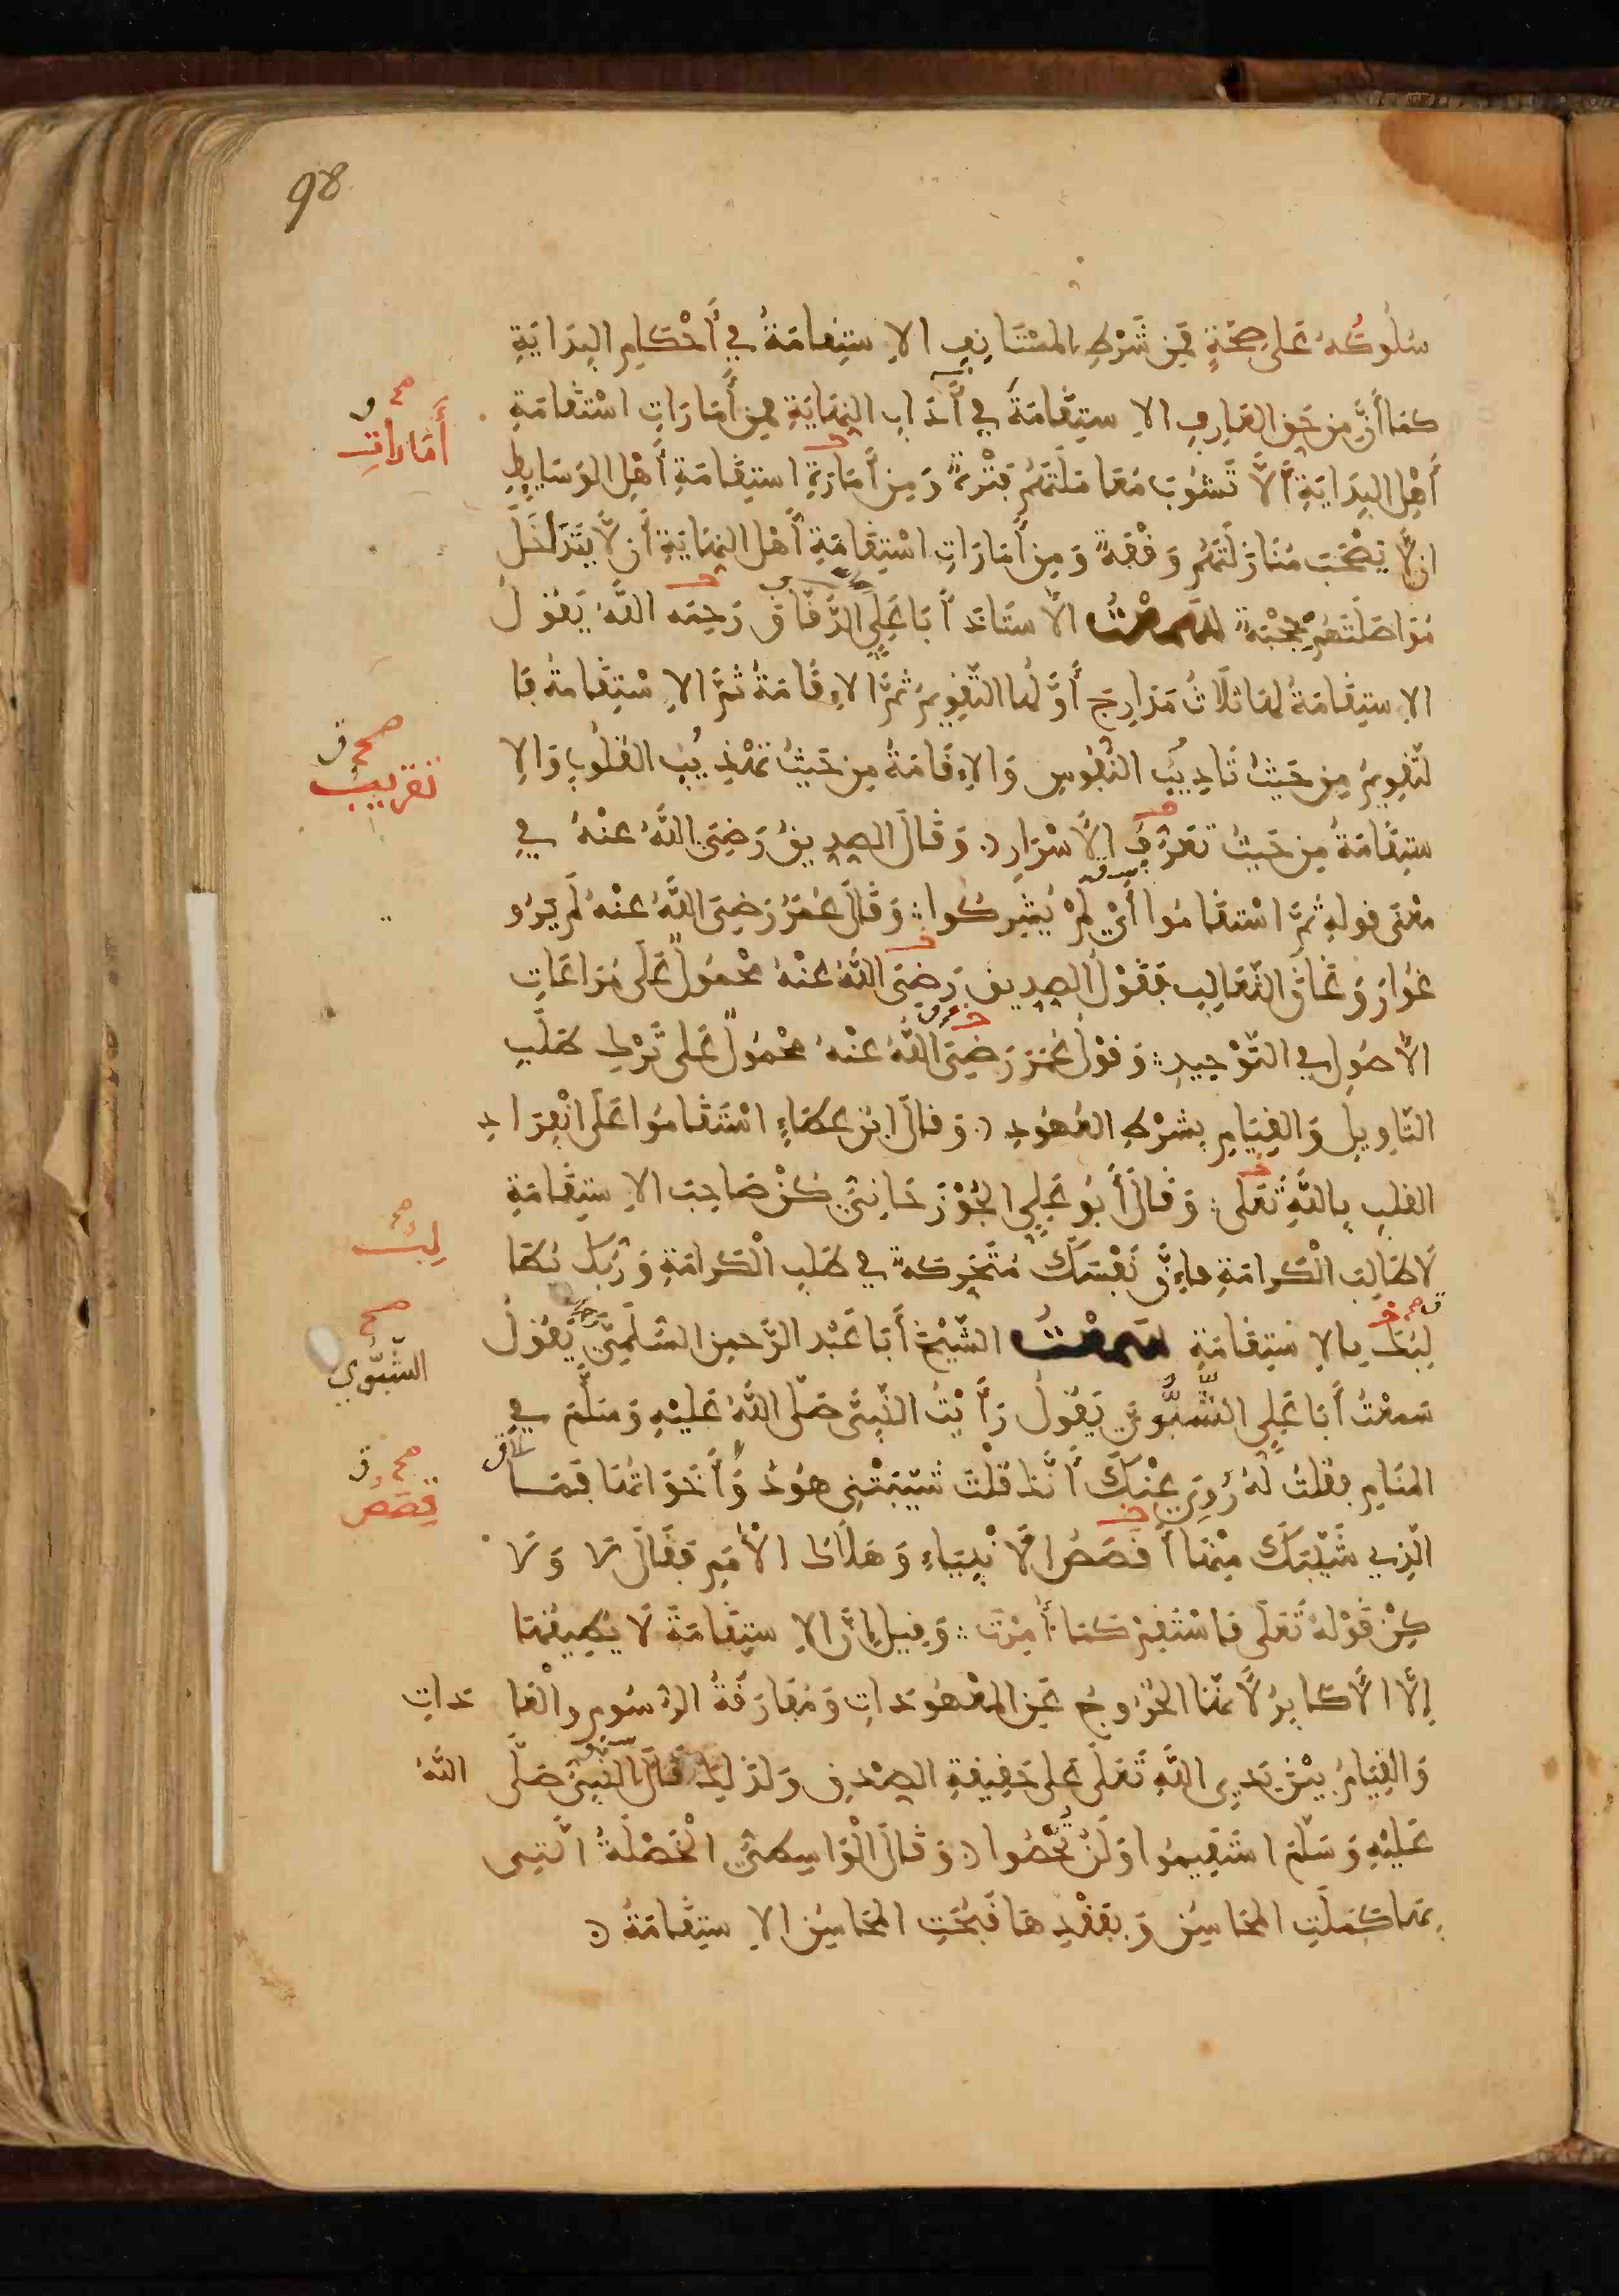 98
سُلُوكُهُ عَلَى صِحَّةٍ فَمِنْ شَرْطِ الْمُسْتَأْنِفِ الاِسْتِقَامَةُ فِي أَحْكَامِ الْبِدَايَةِ
كَمَا أَنَّ مِنْ حَقِّ الْعَارِفِ الاِسْتِقَامَةَ فِي آدَابِ النِّهَايَةِ فَمِنْ أَمَارَاتِ اسْتِقَامَةِ
صح
أَمَارَاتِ
أَهْلِ الْبِدَايَةِ أَلاَّ تَشُوبَ مُعَامَلَتَهُمْ فَتْرَةٌ وَمِنْ أَمَارَةِ اسْتِقَامَةِ أَهْلِ الْوَسَايِطِ
أَن لاَّ يَصْحَبَ مُنَازَلَتَهُمْ وَقْفَةٌ وَمِنْ أَمَارَاتِ اسْتِقَامَةِ أَهْلِ النِّهَايَةِ أَن لاَّ يَتَدَاخَلَ
مُوَاصَلَتَهُمْ حَجْبَةٌ سَمِعْتُ الأُسْتَاذَ أَبَا عَلِيٍّ الدَّقَّاقَ رَحِمَه اللَّهُ يَقُولُ
الاِسْتِقَامَةُ لَهَا ثَلاَثُ مَدَارِجَ أَوَّلُهَا التَّقْوِيمُ ثُمَّ الاِقَامَةُ ثُمَّ الاِسْتِقَامَةُ فَا
لتَّقْوِيمُ مِنْ حَيْثُ تَادِيبُ النُّفُوسِ وَالاِقَامَةُ مِنْ حَيْثُ تَهْذِيبُ الْقُلُوبِ وَالاِ
صح ق
تَقْرِيبُ
سْتِقَامَةُ مِنْ حَيْثُ تَعَرُّفُ الأَسْرَارِ وَقَالَ الصِّدِّيقُ رَضِيَ اللَّهُ عَنْهُ فِي
مَعْنَى قولِهِ ثُمَّ اسْتَقَامُوا أَيْ لَمْ يُشْرِكُوا وَقَالَ عُمَرُ رَضِيَ اللَّهُ عَنْهُ لَمْ يَرُو
غُوا رَوَغَانَ الثَّعَالِبِ فَقَوْلُ الصِّدِّيقِ رَضِيَ اللَّهُ عَنْهُ مَحْمُولٌ عَلَى مُرَاعَاتِ
الأُصُولِ فِي التَّوْحِيدِ وَقَوْلُ عُمَرَ رَضِيَ اللَّهُ عَنْهُ مَحْمُولٌ عَلَى تَرْكِ طَلَبِ
التَّاوِيلِ وَالْقِيَامِ بِشَرْطِ الْعُهُودِ وَقَالَ ابْنُ عَطَاءٍ اسْتَقَامُوا عَلَى انْفِرَادِ
القَلْبِ بِاللَّهِ تَعَلَى وَقَالَ أَبُو عَلِيٍّ الْجُوْزَجَانِيُّ كُنْ صَاحِبَ الاِسْتِقَامَةِ
لاَ طَالِبَ الْكَرَامَةِ فَإِنَّ نَفْسَكَ مُتَحَرِّكَةٌ فِي طَلَبِ الْكَرَامَةِ وَرَبُّكَ يُطَا
صح
لِبُ
لِبُكَ بِالاِسْتِقَامَةِ سَمِعْتُ الشَّيْخَ أَبَا عَبْد الرَّحمنِ السُّلَمِيَّ يَقُولُ
صح
الشَّبُّوِي
سَمِعْتُ أَبَا عَلِيٍّ الشَّبُّوِيَّ يَقُولُ رَأَيْتُ النَّبِيَّ صَلَّى اللَّهُ عَلَيْهِ وَسَلَّمَ فِي
الْمَنَامِ فَقُلْتُ لَهُ رُوِيَ عَنْكَ أَنَّكَ قُلْتَ شَيَّبَتْنِي هُودُ وَأَخَوَاتُهَا فَمَا
صح ق
قِصَصُ
الَّذِي شَيَّبَكَ مِنْهَا أَقَصَصُ الأَنْبِيَاءِ وَهَلاَكُ الأُمَمِ فَقَالَ لاَ وَلاَ
كِنْ قَوْلُهُ تَعَلَى فَاسْتَقِمْ كَمَا أُمِرْتَ وَقِيلَ إِنَّ الاِسْتِقَامَةَ لاَ يُطِيقُهَا
إِلَّا الأَكَابِرُ لأَنَّهَا الْخُرُوجُ عَنِ الْمَعْهُودَاتِ وَمُفَارَقَةُ الرُّسُومِ وَالْعَادَاتِ
وَالْقِيَامُ بَيْنَ يَدَيِ اللَّهِ تَعَلَى عَلَى حَقِيقَةِ الصِّدْقِ وَلِذَلِكَ قَالَ النَّبِيُّ صَلَّى اللَّهُ
عَلَيْهِ وَسَلَّمَ اسْتَقِيمُوا وَلَنْ تُحْصُوا وَقَالَ الْوَاسِطِيُّ الْخَصْلَةُ الَّتِي
بِهَا كَمَلَتِ الْمَحَاسِنُ وَبِفَقْدِهَا قَبُحَتِ الْمَحَاسِنُ الاِسْتِقَامَةُ